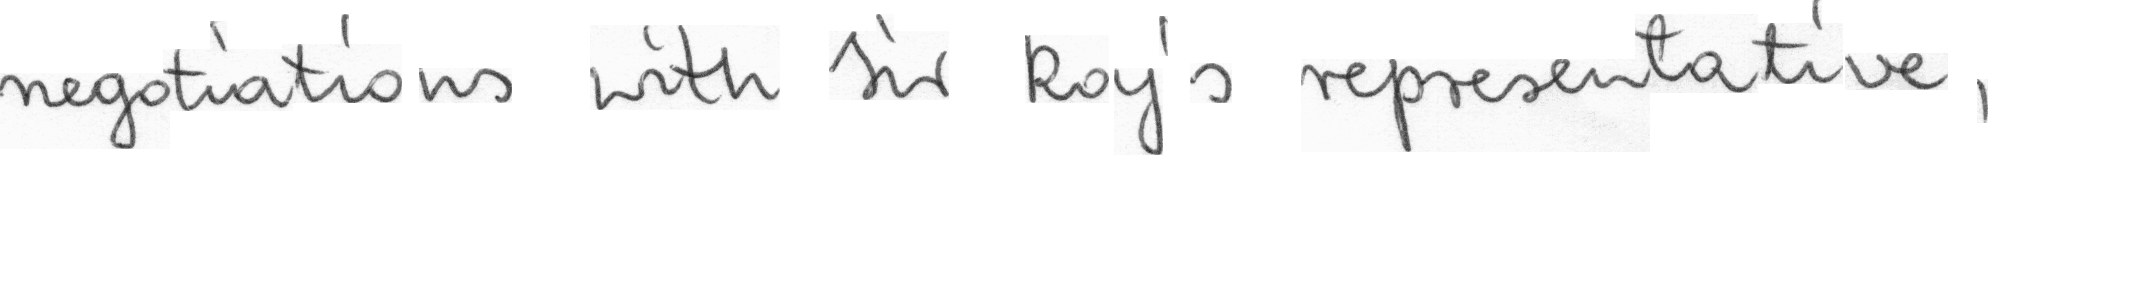 negotiations with Sir Roy's representative,